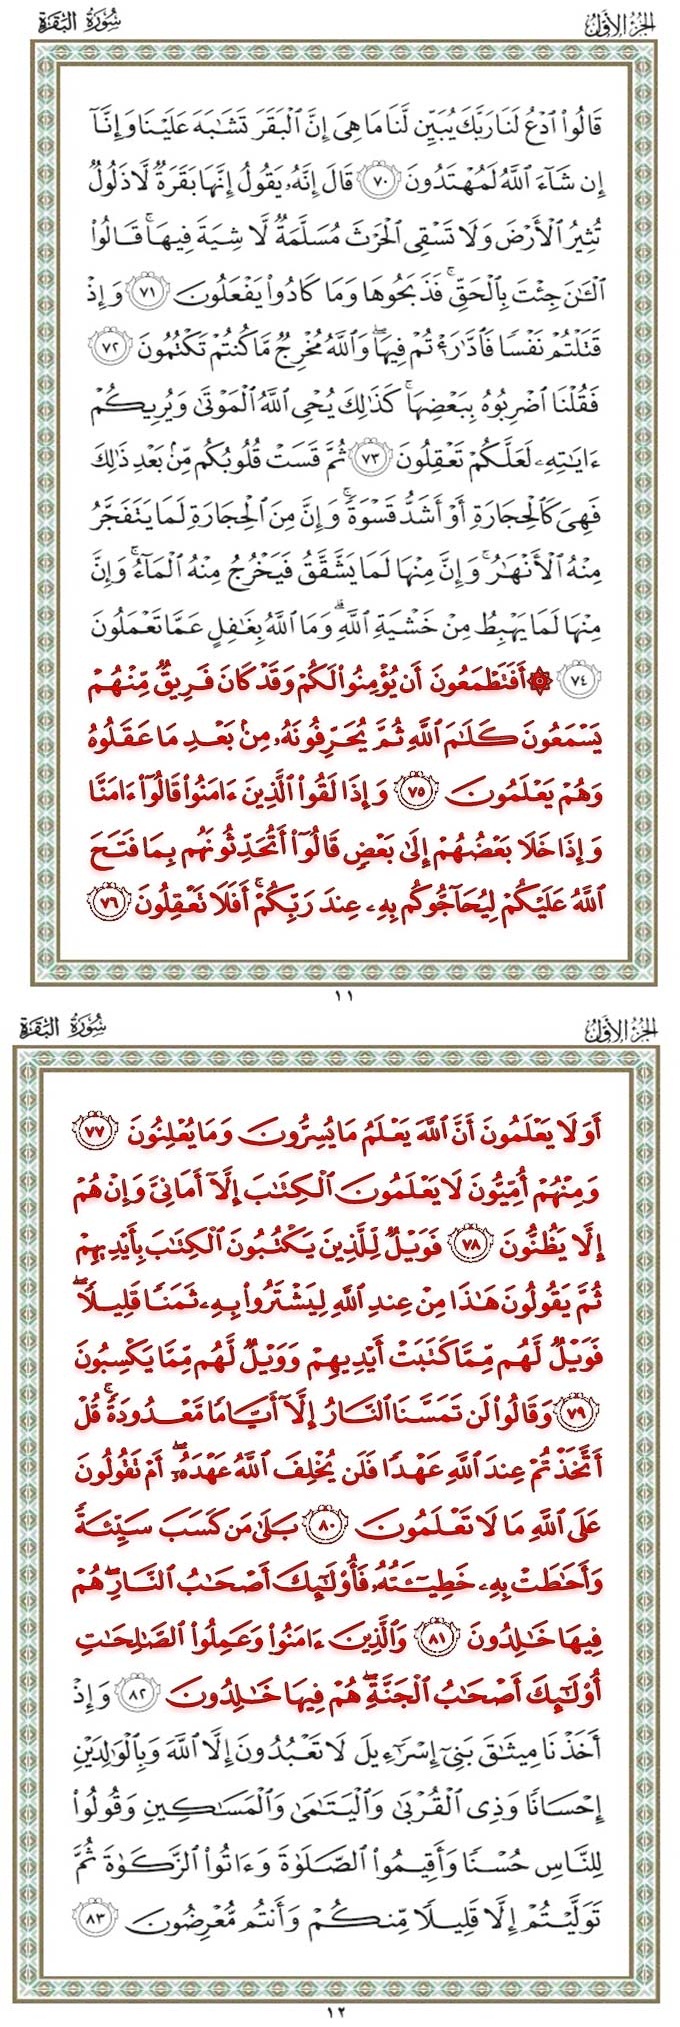 الجزء الأول
سورة البقرة
قَالُوا۟ ٱدْعُ لَنَا رَبَّكَ يُبَيِّن لَّنَا مَا هِىَ إِنَّ ٱلْبَقَرَ تَشَٰبَهَ عَلَيْنَا وَإِنَّآ
إِن شَآءَ ٱللَّهُ لَمُهْتَدُونَ ٧٠ قَالَ إِنَّهُۥ يَقُولُ إِنَّهَا بَقَرَةٌ لَّا ذَلُولٌ
تُثِيرُ ٱلْأَرْضَ وَلَا تَسْقِى ٱلْحَرْثَ مُسَلَّمَةٌ لَّا شِيَةَ فِيهَا ۚ قَالُوا۟
ٱلْـَٰٔنَ جِئْتَ بِٱلْحَقِّ ۚ فَذَبَحُوهَا وَمَا كَادُوا۟ يَفْعَلُونَ ٧١ وَإِذْ
قَتَلْتُمْ نَفْسًا فَٱدَّٰرَْٰٔتُمْ فِيهَا ۖ وَٱللَّهُ مُخْرِجٌ مَّا كُنتُمْ تَكْتُمُونَ ٧٢
فَقُلْنَا ٱضْرِبُوهُ بِبَعْضِهَا ۚ كَذَٰلِكَ يُحْىِ ٱللَّهُ ٱلْمَوْتَىٰ وَيُرِيكُمْ
ءَايَٰتِهِۦ لَعَلَّكُمْ تَعْقِلُونَ ٧٣ ثُمَّ قَسَتْ قُلُوبُكُم مِّنۢ بَعْدِ ذَٰلِكَ
فَهِىَ كَٱلْحِجَارَةِ أَوْ أَشَدُّ قَسْوَةً ۚ وَإِنَّ مِنَ ٱلْحِجَارَةِ لَمَا يَتَفَجَّرُ
مِنْهُ ٱلْأَنْهَٰرُ ۚ وَإِنَّ مِنْهَا لَمَا يَشَّقَّقُ فَيَخْرُجُ مِنْهُ ٱلْمَآءُ ۚ وَإِنَّ
مِنْهَا لَمَا يَهْبِطُ مِنْ خَشْيَةِ ٱللَّهِ ۗ وَمَا ٱللَّهُ بِغَٰفِلٍ عَمَّا تَعْمَلُونَ
٧٤ ۞ أَفَتَطْمَعُونَ أَن يُؤْمِنُوا۟ لَكُمْ وَقَدْ كَانَ فَرِيقٌ مِّنْهُمْ
يَسْمَعُونَ كَلَٰمَ ٱللَّهِ ثُمَّ يُحَرِّفُونَهُۥ مِنۢ بَعْدِ مَا عَقَلُوهُ
وَهُمْ يَعْلَمُونَ ٧٥ وَإِذَا لَقُوا۟ ٱلَّذِينَ ءَامَنُوا۟ قَالُوٓا۟ ءَامَنَّا
وَإِذَا خَلَا بَعْضُهُمْ إِلَىٰ بَعْضٍ قَالُوٓا۟ أَتُحَدِّثُونَهُم بِمَا فَتَحَ
ٱللَّهُ عَلَيْكُمْ لِيُحَآجُّوكُم بِهِۦ عِندَ رَبِّكُمْ ۚ أَفَلَا تَعْقِلُونَ ٧٦
١١
الجزء الأول
سورة البقرة
أَوَلَا يَعْلَمُونَ أَنَّ ٱللَّهَ يَعْلَمُ مَا يُسِرُّونَ وَمَا يُعْلِنُونَ ٧٧
وَمِنْهُمْ أُمِّيُّونَ لَا يَعْلَمُونَ ٱلْكِتَٰبَ إِلَّآ أَمَانِىَّ وَإِنْ هُمْ
إِلَّا يَظُنُّونَ ٧٨ فَوَيْلٌ لِّلَّذِينَ يَكْتُبُونَ ٱلْكِتَٰبَ بِأَيْدِيهِمْ
ثُمَّ يَقُولُونَ هَٰذَا مِنْ عِندِ ٱللَّهِ لِيَشْتَرُوا۟ بِهِۦ ثَمَنًا قَلِيلًا ۖ
فَوَيْلٌ لَّهُم مِّمَّا كَتَبَتْ أَيْدِيهِمْ وَوَيْلٌ لَّهُم مِّمَّا يَكْسِبُونَ
٧٩ وَقَالُوا۟ لَن تَمَسَّنَا ٱلنَّارُ إِلَّآ أَيَّامًا مَّعْدُودَةً ۚ قُلْ
أَتَّخَذْتُمْ عِندَ ٱللَّهِ عَهْدًا فَلَن يُخْلِفَ ٱللَّهُ عَهْدَهُۥٓ ۖ أَمْ تَقُولُونَ
عَلَى ٱللَّهِ مَا لَا تَعْلَمُونَ ٨٠ بَلَىٰ مَن كَسَبَ سَيِّئَةً
وَأَحَٰطَتْ بِهِۦ خَطِيٓـَٔتُهُۥ فَأُو۟لَٰٓئِكَ أَصْحَٰبُ ٱلنَّارِ ۖ هُمْ
فِيهَا خَٰلِدُونَ ٨١ وَٱلَّذِينَ ءَامَنُوا۟ وَعَمِلُوا۟ ٱلصَّٰلِحَٰتِ
أُو۟لَٰٓئِكَ أَصْحَٰبُ ٱلْجَنَّةِ ۖ هُمْ فِيهَا خَٰلِدُونَ ٨٢ وَإِذْ
أَخَذْنَا مِيثَٰقَ بَنِىٓ إِسْرَٰٓءِيلَ لَا تَعْبُدُونَ إِلَّا ٱللَّهَ وَبِٱلْوَٰلِدَيْنِ
إِحْسَانًا وَذِى ٱلْقُرْبَىٰ وَٱلْيَتَٰمَىٰ وَٱلْمَسَٰكِينِ وَقُولُوا۟
لِلنَّاسِ حُسْنًا وَأَقِيمُوا۟ ٱلصَّلَوٰةَ وَءَاتُوا۟ ٱلزَّكَوٰةَ ثُمَّ
تَوَلَّيْتُمْ إِلَّا قَلِيلًا مِّنكُمْ وَأَنتُم مُّعْرِضُونَ ٨٣
١٢